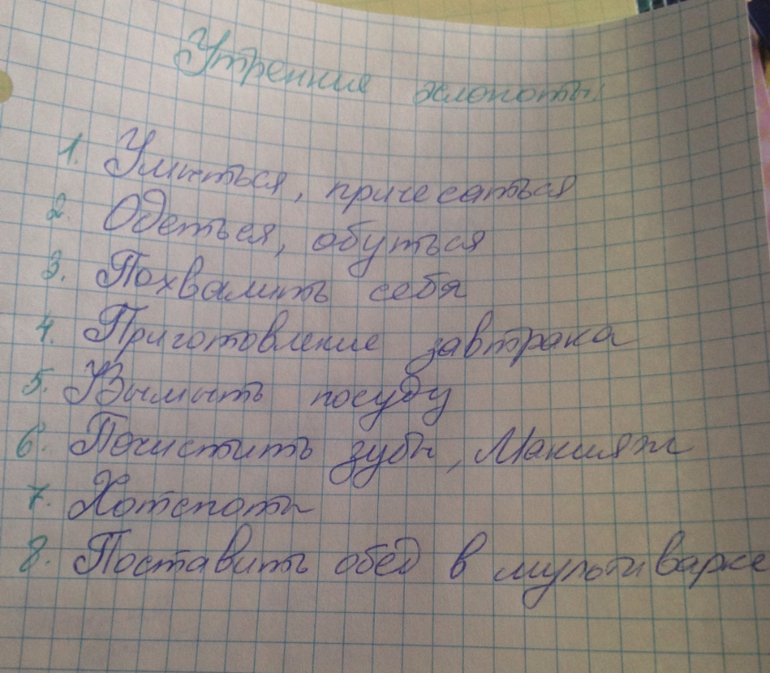 Утренние хлопоты:
1. Умыться, причесаться
2. Одеться, обуться
3. Похвалить себя
4. Приготовление завтрака
5. Вымыть посуду
6. Почистить зубы, Макияж
7. Хотспоты
8. Поставить обед в мультиварке